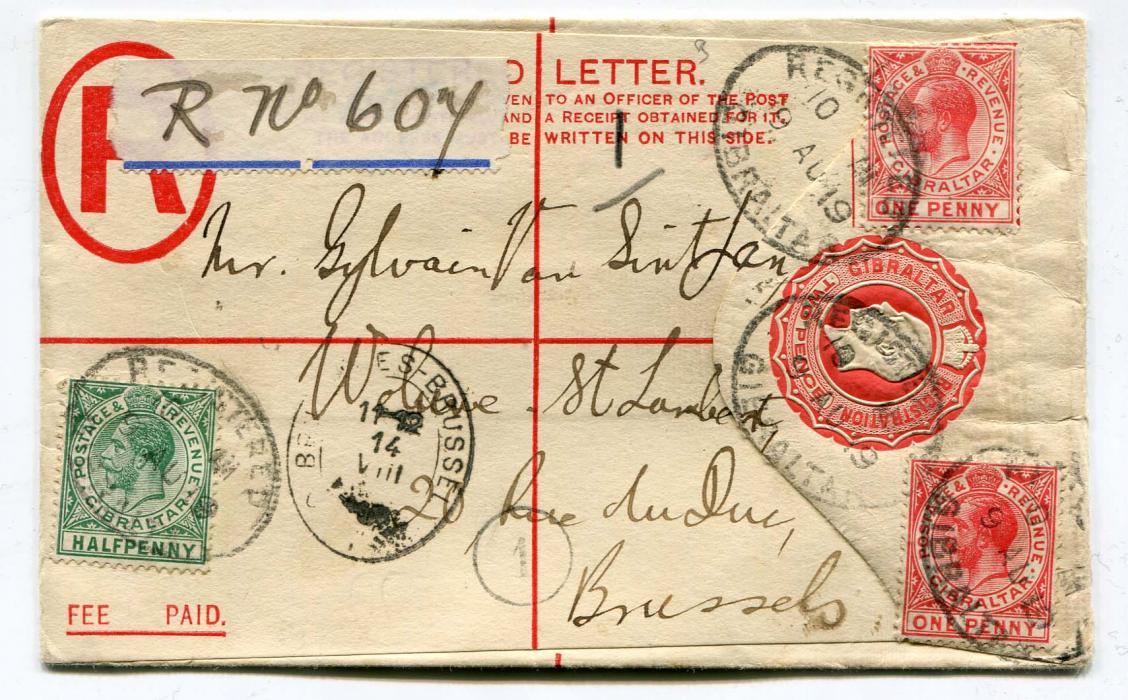 R
R No 607
D LETTER.
VEN TO AN OFFICER OF THE POST
AND A RECEIPT OBTAINED FOR IT.
BE WRITTEN ON THIS SIDE.
1
REG
10
AU 19
GIBRALTAR
POSTAGE & REVENUE
GIBRALTAR
ONE PENNY
Mr. Sylvain Van Sint Jan
GIBRALTAR
TWO PENCE
REGISTRATION
GIBRALTAR
Woluwe - St Lambert
20 Rue du Duc,
Brussels
REGISTERED
POSTAGE & REVENUE
GIBRALTAR
HALFPENNY
ES-BRUSSEL
14
VIII
1
POSTAGE & REVENUE
GIBRALTAR
ONE PENNY
FEE PAID.